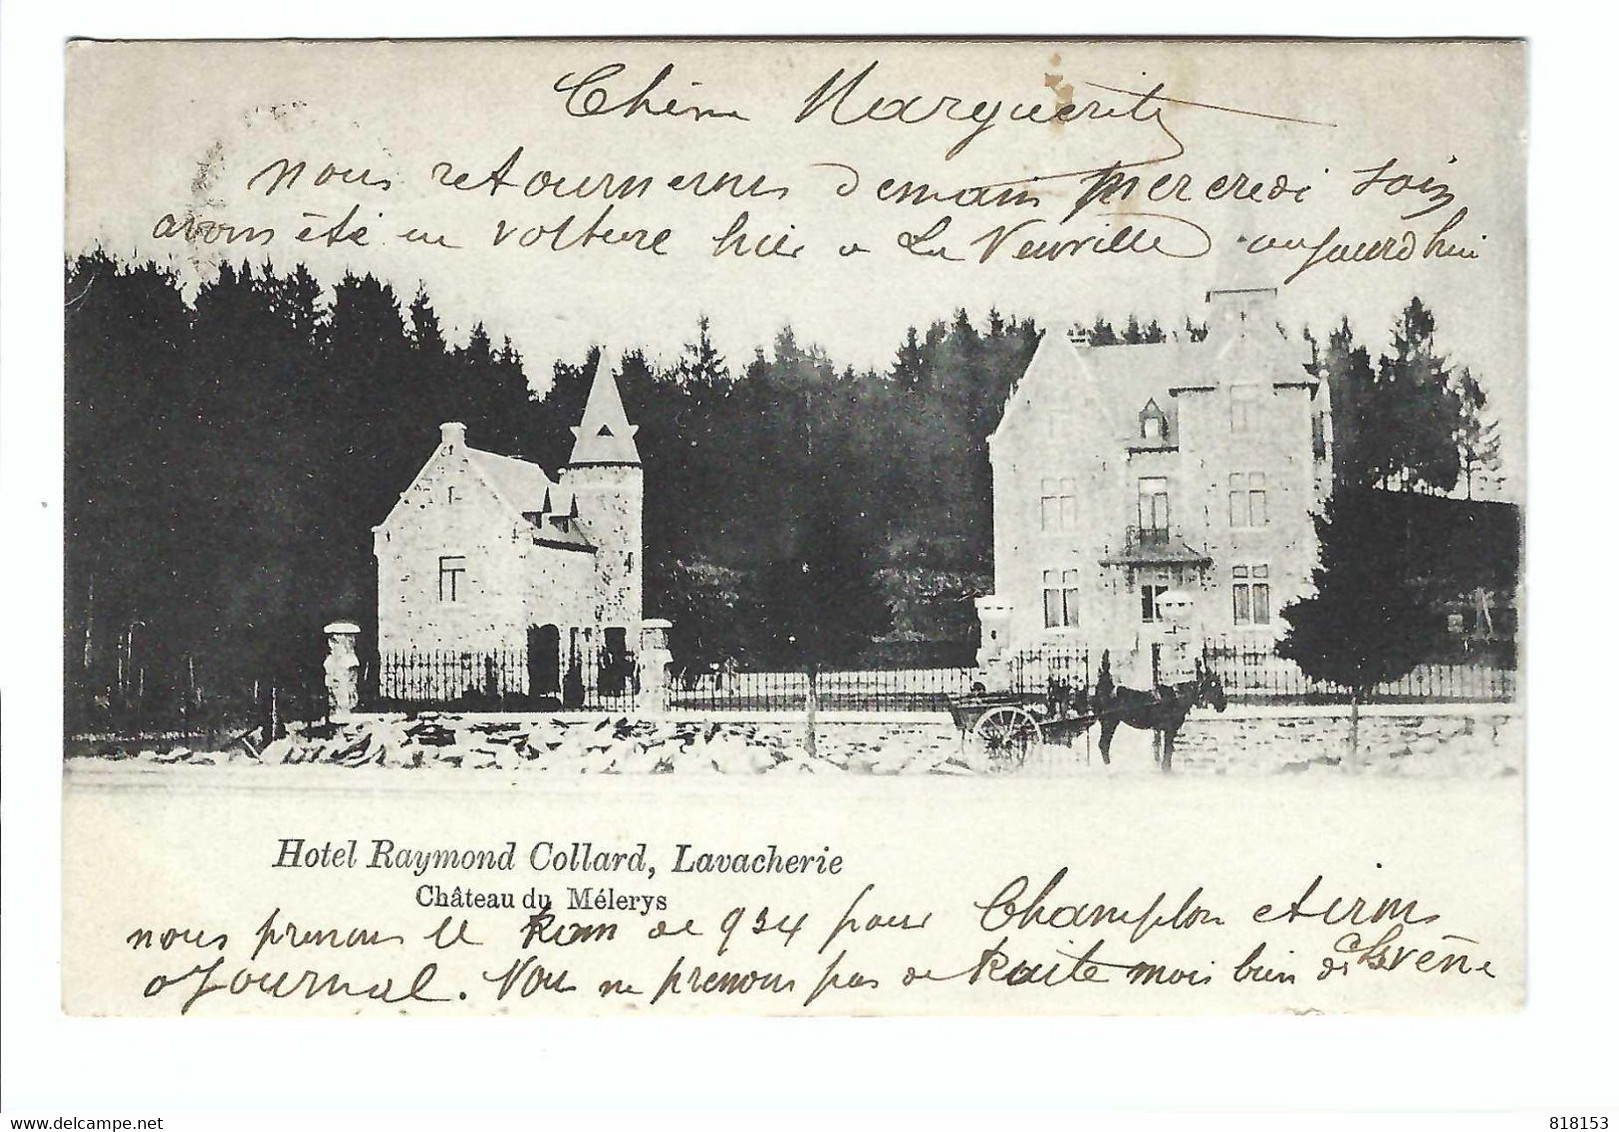 Chère Marguerite
nous retournerons demain mercredi soir
avons été en voiture hier a La Neuville aujourd'hui
Hotel Raymond Collard, Lavacherie
Château du Mélerys
nous prenons le tram de 9 34 pour Champlon et irons
a Journal. Nous ne prenons pas de truite mais bien de
delcampe.net
818153